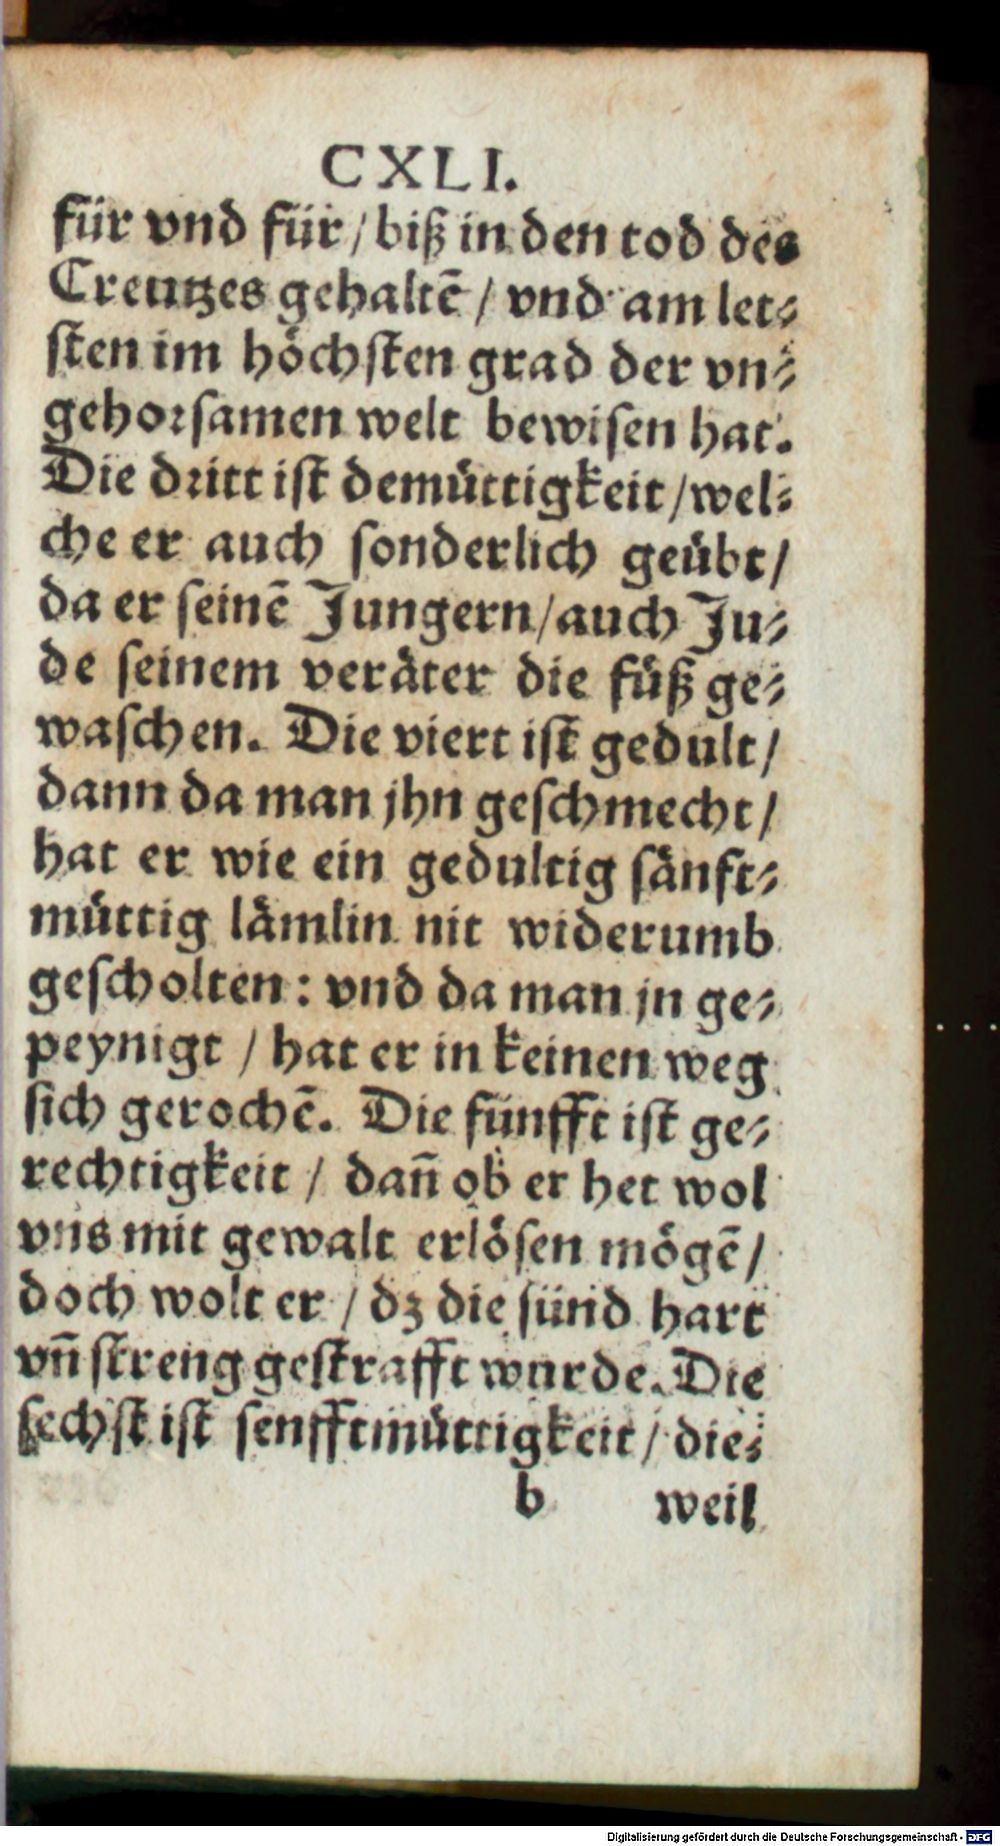 CXLI.
für vnd für / biß in den tod des
Creutzes gehaltē / vnd am let⸗
sten im höchsten grad der vn⸗
gehorsamen welt bewisen hat.
Die dritt ist demüttigkeit / wel⸗
che er auch sonderlich geübt /
da er seinē Jungern / auch Ju⸗
de seinem veräter die füß ge⸗
waschen. Die viert ist gedult /
dann da man jhn geschmecht /
hat er wie ein gedultig sänft⸗
müttig lämlin nit widerumb
gescholten: vnd da man jn ge⸗
peynigt / hat er in keinen weg
sich gerochē. Die fünfft ist ge⸗
rechtigkeit / dañ ob er het wol
vns mit gewalt erlösen mögē /
doch wolt er / dz die sünd hart
vñ streng gestrafft wurde. Die
sechst ist senfftmüttigkeit / die⸗
b weil
Digitalisierung gefördert durch die Deutsche Forschungsgemeinschaft - DFG